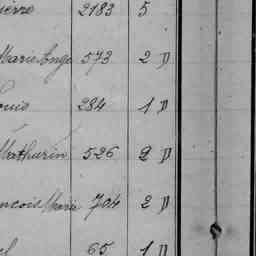 ierre 2183 5
Marie Ange 573 2 D
ouis 284 1 D
Mathurin 526 2 D
ncois Marie 704 2 D
el 65 1 D